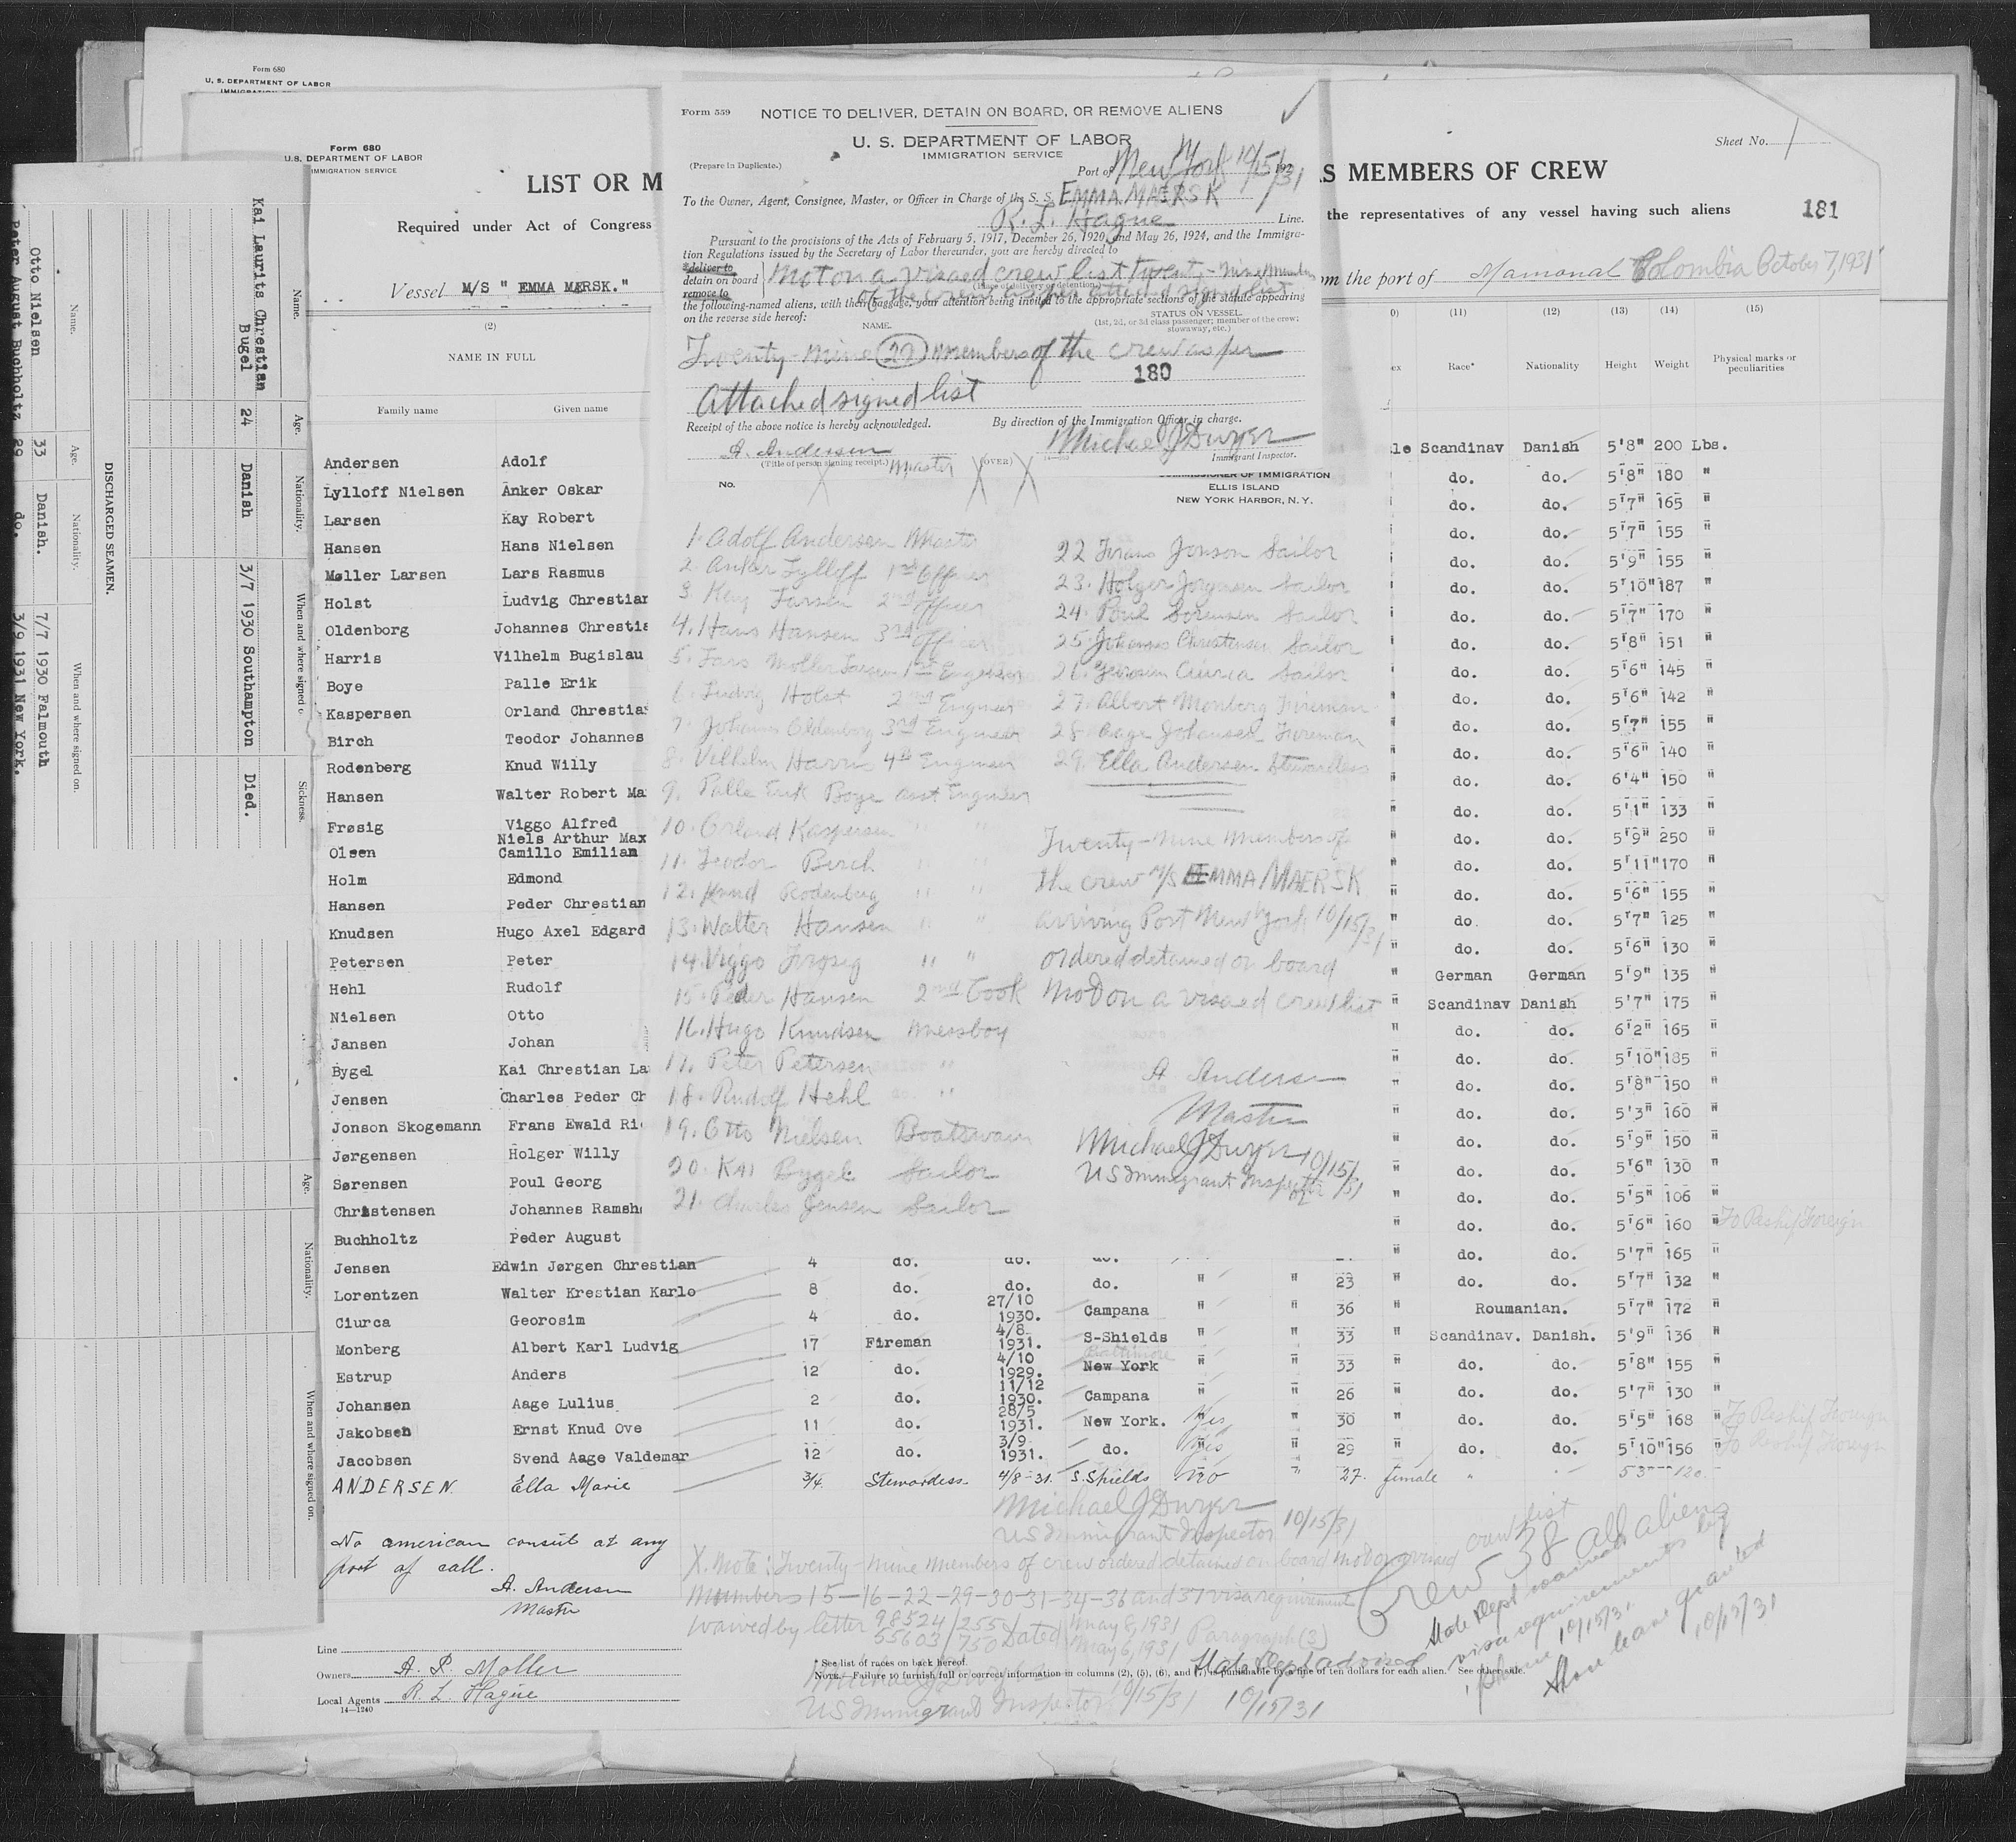 Form 680
U. S. DEPARTMENT OF LABOR
Form 680
U.S. DEPARTMENT OF LABOR
IMMIGRATION SERVICE
LIST OR M
Required under Act of Congress
Vessel M/S " EMMA MÆRSK."
(2)
NAME IN FULL
Family name Given name
Andersen Adolf
Lylloff Nielsen Anker Oskar
Larsen Kay Robert
Hansen Hans Nielsen
Møller Larsen Lars Rasmus
Holst Ludvig Chrestian
Oldenborg Johannes Chrestia
Harris Vilhelm Bugislau
Boye Palle Erik
Kaspersen Orland Chrestia
Birch Teodor Johannes
Rodenberg Knud Willy
Hansen Walter Robert Ma
Frøsig Viggo Alfred
Niels Arthur Max
Olsen Camillo Emilian
Holm Edmond
Hansen Peder Chrestian
Knudsen Hugo Axel Edgard
Petersen Peter
Hehl Rudolf
Nielsen Otto
Jansen Johan
Bygel Kai Chrestian La
Jensen Charles Peder Ch
Jonson Skogemann Frans Ewald Ri
Jørgensen Holger Willy
Sørensen Poul Georg
Christensen Johannes Ramsh
Buchholtz Peder August
Jensen Edwin Jørgen Chrestian 4 do. do. do.
Lorentzen Walter Krestian Karlo 8 do. do. do. " " 23 "
Ciurca Georosim 4 do. 27/10 1930. Campana " " 36 "
Monberg Albert Karl Ludvig 17 Fireman 4/8 1931. S-Shields " " 33 "
Estrup Anders 12 do. 4/10 1929. Baltimore New York " " 33 "
Johansen Aage Lulius 2 do. 11/12 1930. Campana " " 26 "
Jakobsen Ernst Knud Ove 11 do. 28/5 1931. New York. Yes " 30 "
Jacobsen Svend Aage Valdemar 12 do. 3/9 1931. do. Yes " 29 "
ANDERSEN Ella Marie 3/4 Stewardess 4/8-31. S. Shields no " 27. female
No american consul at any
port of call.
A. Andersen
Master
Line
Owners A. P. Moller
Local Agents R. L. Hague
14—1240
Form 559 NOTICE TO DELIVER, DETAIN ON BOARD, OR REMOVE ALIENS
U. S. DEPARTMENT OF LABOR
IMMIGRATION SERVICE
(Prepare in Duplicate.)
Port of New York 10/15/31
To the Owner, Agent, Consignee, Master, or Officer in Charge of the S. S. EMMA MAERSK
R. L. Hague Line.
Pursuant to the provisions of the Acts of February 5, 1917, December 26, 1920, and May 26, 1924, and the Immigra-
tion Regulations issued by the Secretary of Labor thereunder, you are hereby directed to
deliver to
detain on board
remove to
Not on a visaed crew list twenty-nine members
of the crew as per attached signed list
(Place of delivery or detention.)
the following-named aliens, with their baggage, your attention being invited to the appropriate sections of the statute appearing
on the reverse side hereof:
NAME. STATUS ON VESSEL
(1st, 2d, or 3d class passenger; member of the crew;
stowaway, etc.)
Twenty-nine (29) members of the crew as per
180
Attached signed list
Receipt of the above notice is hereby acknowledged. By direction of the Immigration Officer in charge.
A. Andersen Michael J Dwyer
(Title of person signing receipt.) Master (OVER) Immigrant Inspector.
No.
COMMISSIONER OF IMMIGRATION
ELLIS ISLAND
NEW YORK HARBOR, N. Y.
1. Adolf Andersen Master
2. Anker Lylloff 1st Officer
3. Kay Larsen 2nd officer
4. Hans Hansen 3rd officer
5. Lars Moller Larsen 1st Engineer
6. Ludvig Holst 2nd Engineer
7. Johannes Oldenborg 3rd Engineer
8. Vilhelm Harris 4th Engineer
9. Palle Erik Boye asst Engineer
10. Orland Kaspersen " "
11. Teodor Birch " "
12. Knud Rodenberg " "
13. Walter Hansen " "
14. Viggo Frosig " "
15. Peder Hansen 2nd Cook
16. Hugo Knudsen Messboy
17. Peter Petersen "
18. Rudolf Hehl "
19. Otto Nielsen Boatswain
20. KAI Bygel Sailor
21. Charles Jensen Sailor
22 Frans Jonson Sailor
23. Holger Jorgensen Sailor
24. Poul Sorensen Sailor
25. Johannes Christensen Sailor
26. Georosim Ciurca Sailor
27. Albert Monberg Fireman
28. Aage Johansen Fireman
29. Ella Andersen Stewardess
Twenty-nine members of
the crew M/S EMMA MAERSK
arriving Port New York 10/15/31
ordered detained on board
Not on a visaed crew list
A Andersen
Master
Michael J Dwyer 10/15/31
US Immigrant Inspector
Sheet No. 1
AS MEMBERS OF CREW
the representatives of any vessel having such aliens 181
om the port of Mamonal Colombia October 7, 1931
0) (11) (12) (13) (14) (15)
ex Race* Nationality Height Weight Physical marks or
peculiarities
le Scandinav Danish 5'8" 200 Lbs.
do. do. 5'8" 180 "
" do. do. 5'7" 165 "
" do. do. 5'7" 155 "
" do. do. 5'9" 155 "
" do. do. 5'10" 187 "
" do. do. 5'7" 170 "
" do. do. 5'8" 151 "
" do. do. 5'6" 145 "
" do. do. 5'6" 142 "
" do. do. 5'7" 155 "
" do. do. 5'6" 140 "
" do. do. 6'4" 150 "
" do. do. 5'1" 133 "
" do. do. 5'9" 250 "
" do. do. 5'11" 170 "
" do. do. 5'6" 155 "
" do. do. 5'7" 125 "
" do. do. 5'6" 130 "
" German German 5'9" 135 "
" Scandinav Danish 5'7" 175 "
" do. do. 6'2" 165 "
" do. do. 5'10" 185 "
" do. do. 5'8" 150 "
" do. do. 5'3" 160 "
" do. do. 5'9" 150 "
" do. do. 5'6" 130 "
" do. do. 5'5" 106 "
" do. do. 5'6" 160 " To Reship Foreign
" do. do. 5'7" 165 "
do. do. 5'7" 132 "
Roumanian. 5'7" 172 "
Scandinav. Danish. 5'9" 136 "
do. do. 5'8" 155 "
do. do. 5'7" 130 "
do. do. 5'5" 168 " To Reship Foreign
do. do. 5'10" 156 " To Reship Foreign
" " 53" 120
Michael J Dwyer
US Immigrant Inspector 10/15/31
X. Note: Twenty-nine members of crew ordered detained on board not on visaed crew list
Numbers 15-16-22-29-30-31-34-36 and 37 visa requirement
waived by letter 98524/255 55603/750 Dated May 8, 1931 May 6, 1931 Paragraph (3)
* See list of races on back hereof.
NOTE.—Failure to furnish full or correct information in columns (2), (5), (6), and (7) is punishable by a fine of ten dollars for each alien. See other side.
US Immigrant Inspector 10/15/31
State Dept advised
10/15/31
Crew 38 all aliens
State Dept waived
visa requirements by
phone 10/15/31.
Shore leave granted
10/15/31
DISCHARGED SEAMEN.
Name. Age. Nationality. When and where signed on.
Otto Nielsen 33 Danish. 7/7 1930 Falmouth
Peter August Buchholtz 29 do. 3/9 1931 New York.
Name. Age. Nationality. When and where signed o Sickness.
Kai Laurits Chrestian
Bugel 24 Danish 3/7 1930 Southampton Died.
Age. Nationality. When and where signed on.